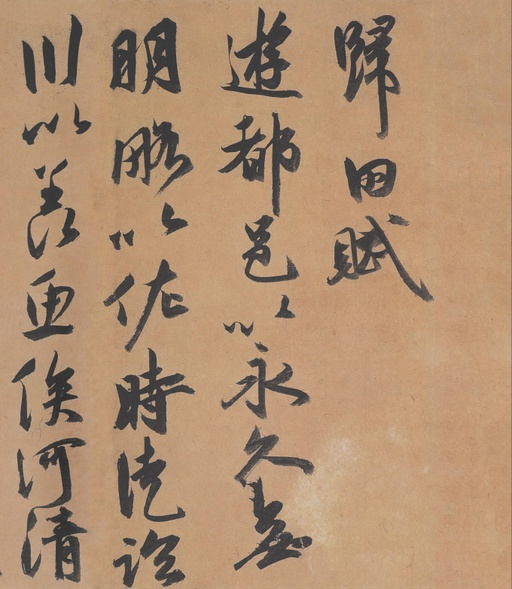 歸田賦
遊都邑以永久無
明略以佐時徒臨
川以羡魚俟河清